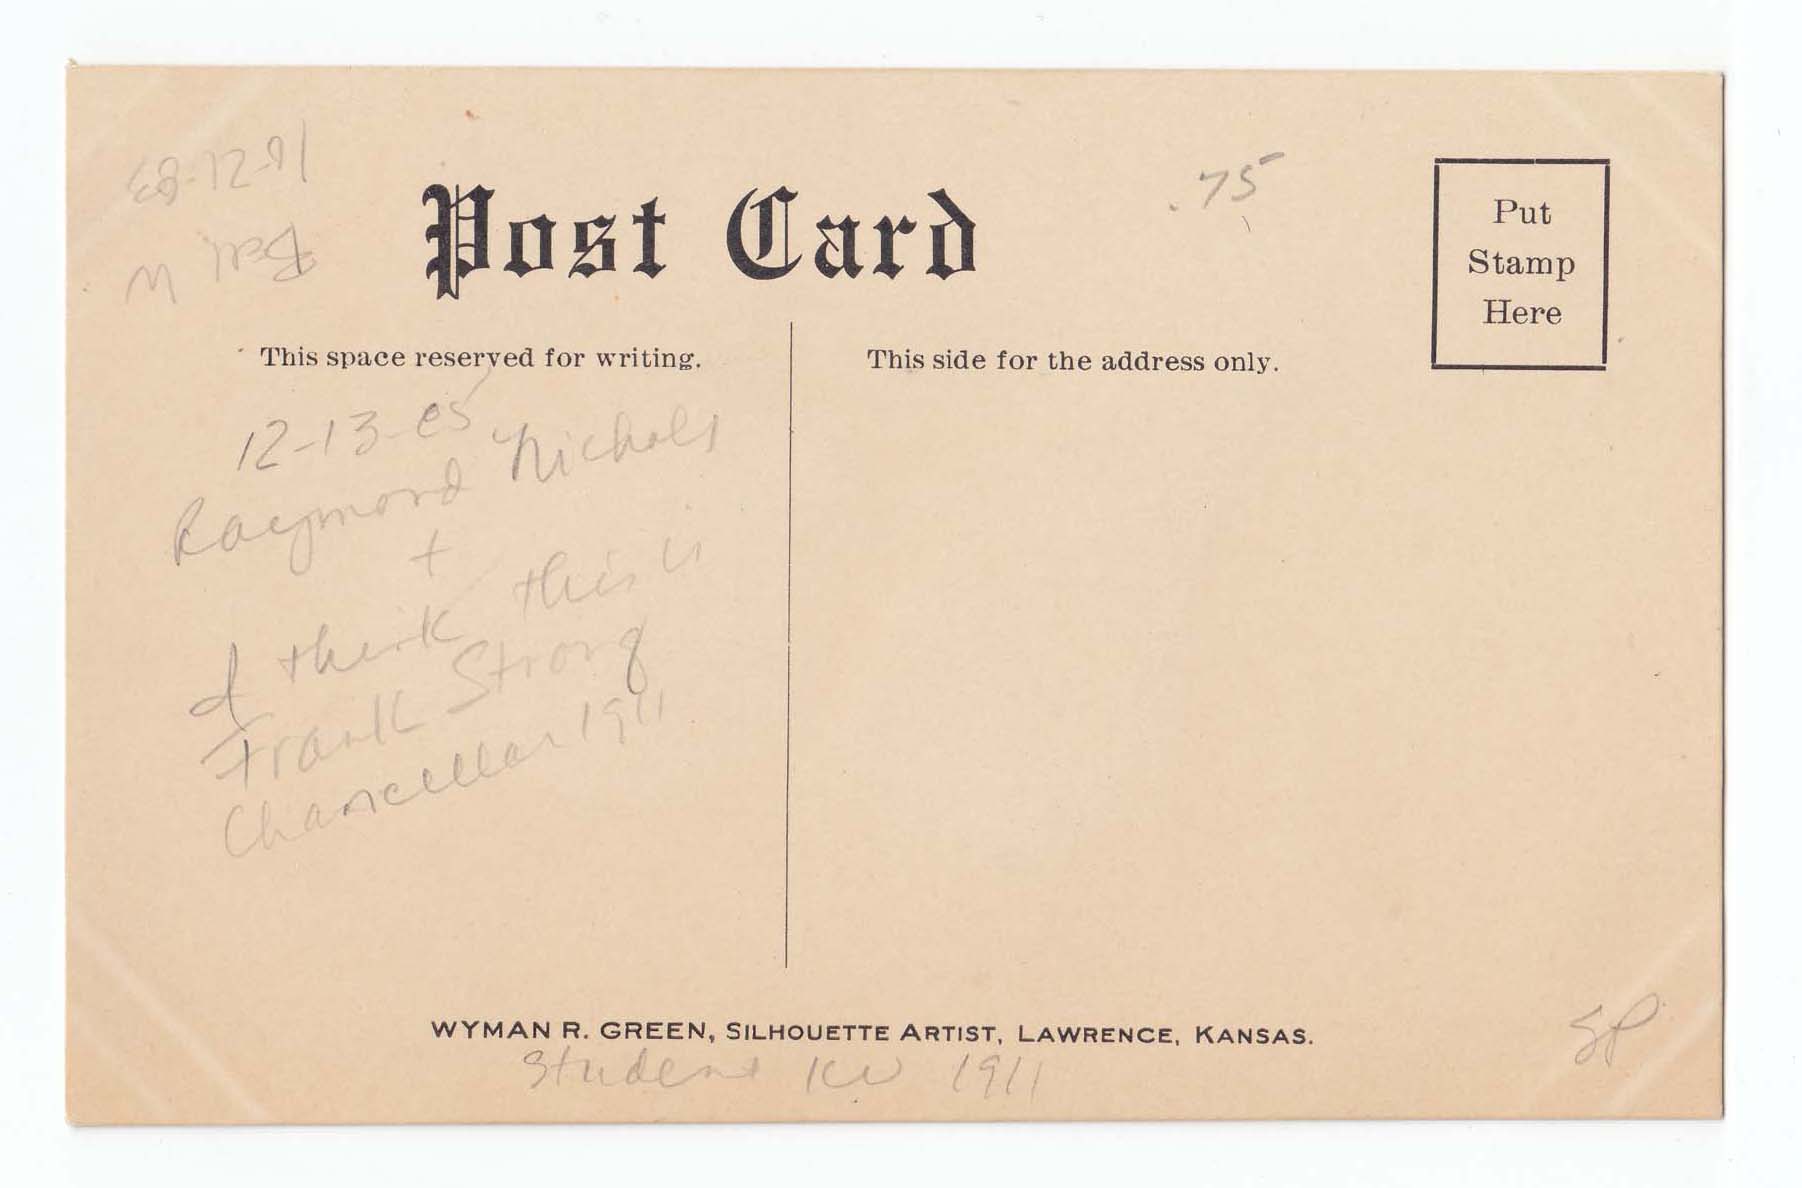 Post Card
.75
Put
Stamp
Here
This space reserved for writing.
This side for the address only.
12-13-85
Raymond Nichols
+
I think this is
Frank Strong
Chancellor 1911
WYMAN R. GREEN, SILHOUETTE ARTIST, LAWRENCE, KANSAS.
Student KU 1911